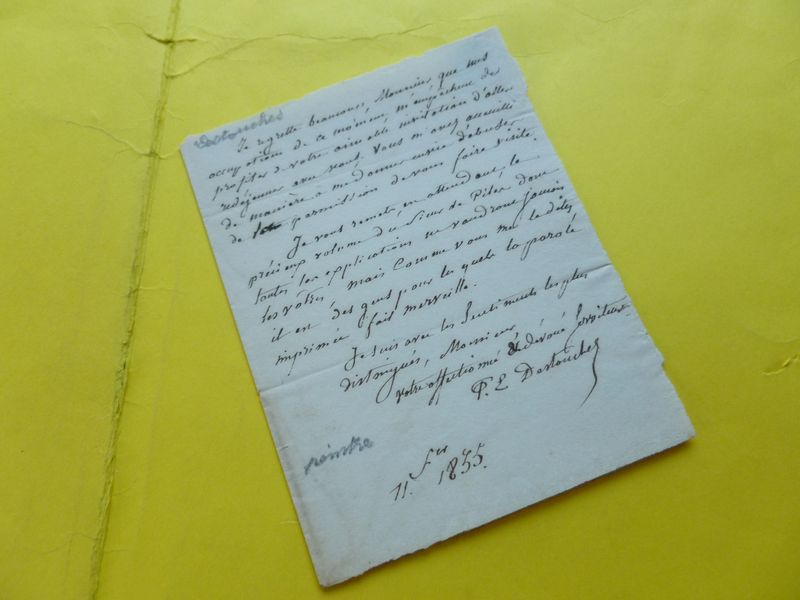 Destouches
Je regrette beaucoup, Monsieur, que mes
occupations de ce moment m'empêchent de
profiter de votre aimable invitation d'aller
redéjeuner avec vous. Vous m'avez accueilli
de manière à me donner envie d'abuser
de la permission de vous faire visite.
Je vous remets, en attendant, le
précieux volume du Sieur de Piles dont
toutes les explications ne vaudront jamais
les vôtres, mais comme vous me le dites,
il en des gens pour les quels la parole
imprimée fait merveille.
Je suis avec les Sentiments les plus
distingués, Monsieur
votre affectionné & dévoué Serviteur
P. E Destouches
peintre
11. Fer 1835.